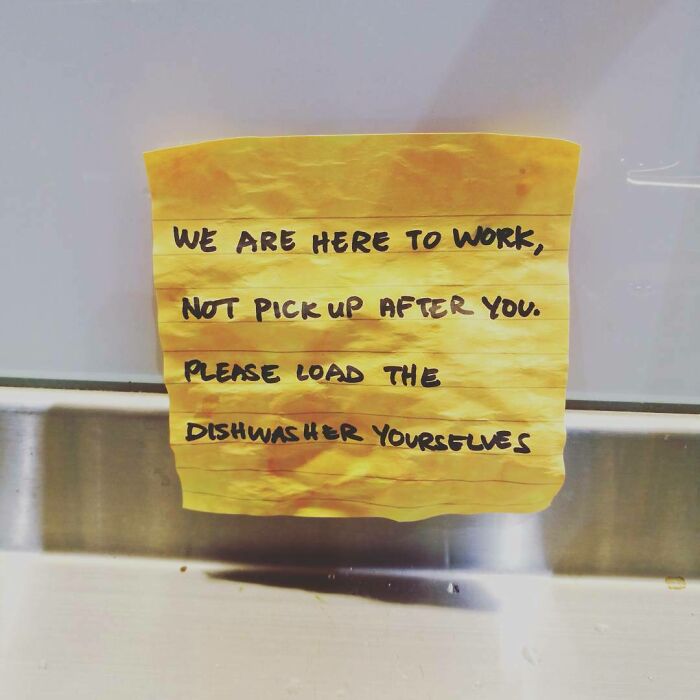 WE ARE HERE TO WORK,
NOT PICK UP AFTER YOU.
PLEASE LOAD THE
DISHWASHER YOURSELVES